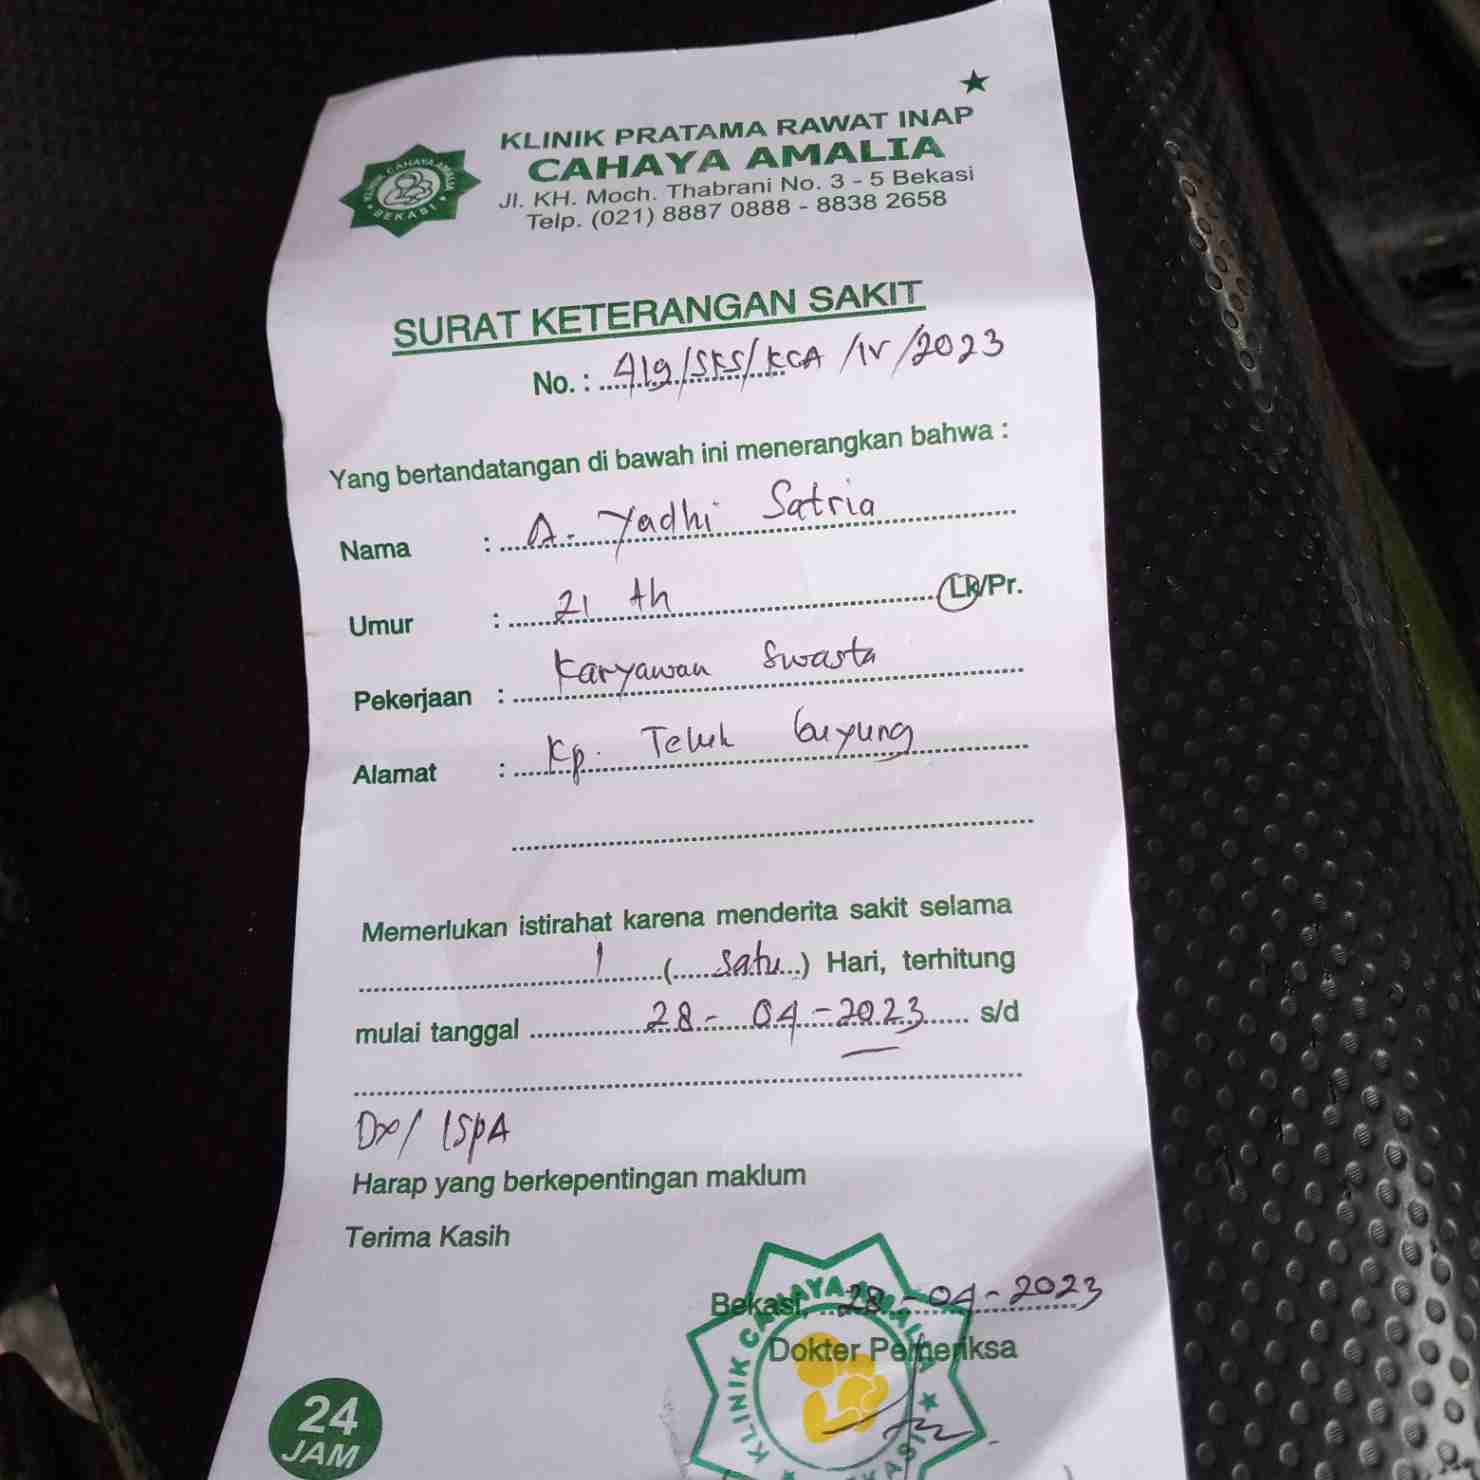 KLINIK PRATAMA RAWAT INAP
CAHAYA AMALIA
Jl. KH. Moch. Thabrani No. 3 - 5 Bekasi
Telp. (021) 8887 0888 - 8838 2658
KLINIK CAHAYA AMALIA
BEKASI
SURAT KETERANGAN SAKIT
No. : 419/SKS/KCA/IV/2023
Yang bertandatangan di bawah ini menerangkan bahwa :
Nama : A. Yadhi Satria
Umur : 21 th Lk/Pr.
Pekerjaan : Karyawan Swasta
Alamat : Kp. Teluk buyung
Memerlukan istirahat karena menderita sakit selama
1 (satu) Hari, terhitung
mulai tanggal 28-04-2023 s/d
Dx/ ISPA
Harap yang berkepentingan maklum
Terima Kasih
Bekasi, 28-04-2023
Dokter Pemeriksa
KLINIK CAHAYA AMALIA
24
JAM